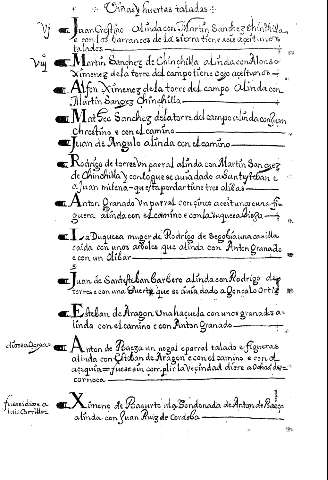 Viñas y huertas taladas
vj Juan Cristino alinda con Martin Sanchez chinchilla
e con los barrancos de la sierra tiene seis açeitunos
talados
viij Martin Sanchez de Chinchilla alinda con Alonso
Ximenez de la torre del campo tiene ocho açeitunos
Alfon Ximenez de la torre del campo alinda con
Martin Sanchez Chinchilla
Mateo Sanchez de la torre del campo alinda con Juan
Christino e con el camino
Juan de Angulo alinda con el camino
Rodrigo de torres vn parral alinda con Martin Sanchez
de Chinchilla y con lo que se auia dado a Santysteban e
a Juan milena que esta por dar tiene tres olibas
Anton Granado vn parral con çinco açeitunos e vna fi
guera alinda con el camino e con la viguera bieja
La Duquesa muger de Rodrigo de Segobia vna casilla
caida con vnos arboles que alinda con Anton Granado
e con vn olibar
Juan de Santysteban barbero alinda con Rodrigo de
torres e con vna huerta que se auia dado a Gonçalo Ortiz
Esteban de Aragon vna haçuela con vnos granados a
linda con el camino e con Anton Granado
Anton de Baeza vn nogal e parral talado e figueras
alinda con Esteban de Aragon e con el camino e con el
açequia fuese sin complir la vezindad diose a
carnoca
fuese diose a
luis Carrillo
Ximeno de la hondonada de Anton de Baeça
alinda con Juan Ruiz de Cordoba